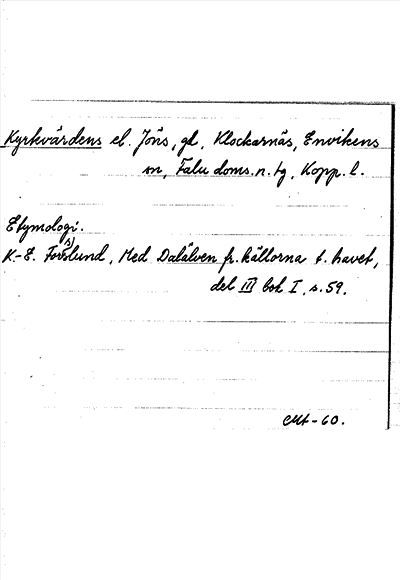 Kyrkvärdens el. Jöns, gd, Klockarnäs, Envikens
sn, Falu doms. n. tg, Kopp. l.
Etymologi.
K-E. Forsslund, Med Dalälven fr. källorna t. havet,
del III bok I, s. 59.
-60.